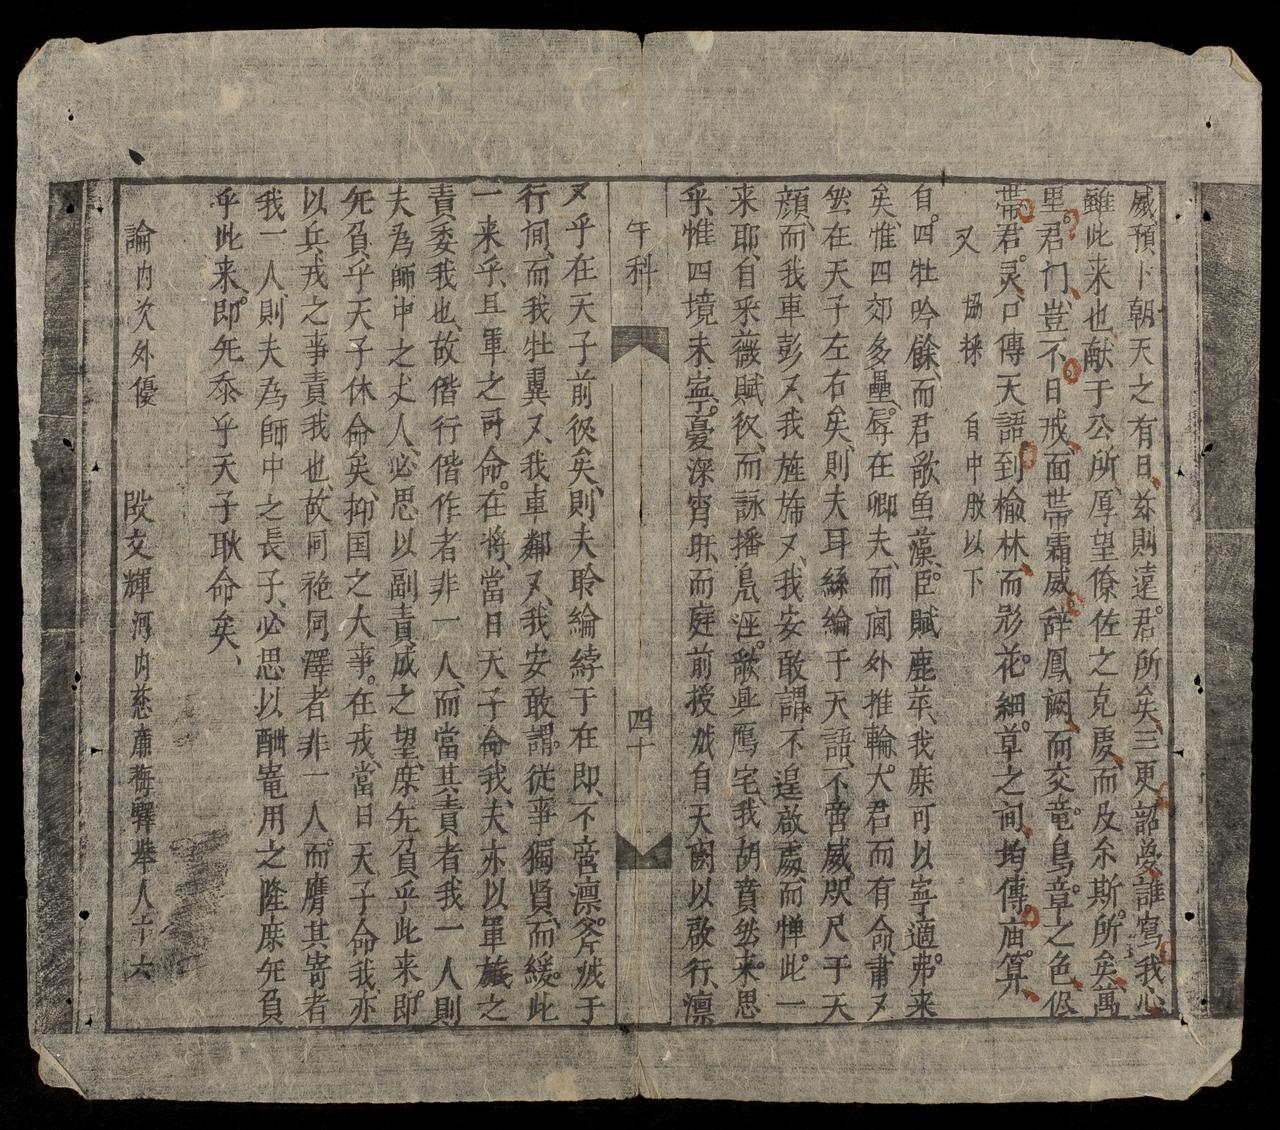 威預卜朝天之有日、茲則違君所矣、三更韶愛誰寫我心
雖此来也、献于公所、厚望僚佐之克慶、而及尔斯所矣、寓
里君门、豈不日戒、面世帝霜威、辞鳳闕、而交竜鳥章之色、伋
带君灵、口傳天語、到榆林、而彩花細草之间、均傳庙算、
又　協採　自中股以下
自四牡吟餘、而君歌鱼藻、臣賦鹿苹、我庶可以寧適弗来
矣、惟四郊多壘、辱在卿夫、而阃外推輪、大君而有命、肅又
然在天子左右矣、則夫耳絲綸于天語、不啻威咫尺于天
顔、而我車彭又、我旌斾又、我安敢謂不遑啟處、而惮此一
来耶、自采薇賦役、而詠播凫泾、歌興鴈宅、我胡賁然来思
乎、惟四境未寧、憂深宵旰、而庭前授鉞、自天闕以啟行、凛
午科
四十
又乎在天子前後矣、則夫聆綸綍于在即、不啻凛斧鉞于
行间、而我牡翼又、我車鄰又、我安敢謂從事獨賢、而緩此
一来乎、且軍之司命、在將、當日天子命我、夫亦以軍旅之
責委我也、故偕行偕作者非一人、而當其責者我一人、則
夫為師中之丈人、必思以副責成之望、庶旡負乎此来、即
旡負乎天子休命矣、抑国之大事、在戎、當日天子命我、亦
以兵戎之事責我也、故同袍同澤者非一人、而膺其寄者
我一人、則夫為師中之長子、必思以酬竜用之隆、庶旡負
乎此来、即旡忝乎天子耿命矣、
論内次外優　段文輝河内慈廉梅驛举人